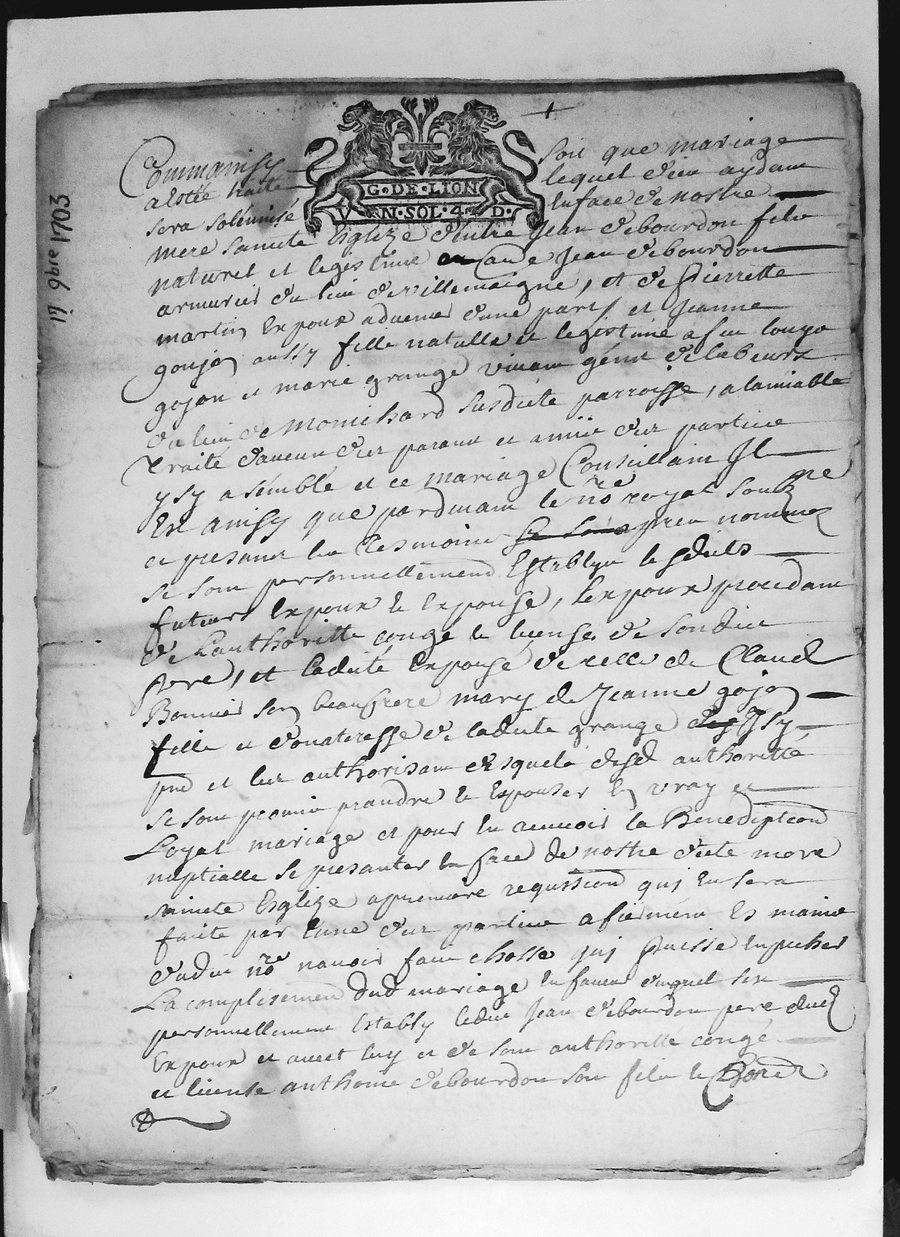 17 9bre 1703
G·DE·LION
V N·SOL·4 D·
Comm ainsy soit que mariage
a esté traité lequel dieu aydant
sera solemnisé en face de nostre
mere saincte Esglize d'entre Jean debourdon filz
naturel et legistime a Jean debourdon
armurier du lieu de villemaigne, et de pierrette
martin Expoux advenir d'une part, et Jeanne
goujon aussy fille natulle et legistime a feu
gojon et marie grange vivant de labeurz
du lieu de Montchard susdicte parroisse, a lamiable
traité d'aucun des parans et amis des parties
ysy asemblé et ce mariage Conseillant Il
Est ainsy que pardevant le nre royal soubz.ne
et presant les tesmoins apres nommez
se sont personnellement Establys lesdits
futurs Expoux et Expouse, l'expoux procedant
de l'authoritte congé et license de sondit
pere, et ladite Expouse de celle de Claude
Bonnier son beaufrere mary de Jeanne gojon
fille et donateresse de ladicte grange Isy
pnt et les authorisant desquels desd authoritté
se sont promis prandre et Espouser en vray et
Loyal mariage et pour en recevoir la Benediption
nuptialle se presanter en face de nostre dicte mere
saincte Esglize a premiere requission qui en sera
faite par l'une des parties afiermera Es mains
dudit nre navoir fait chosse quy puisse enpecher
La complisement dud mariage en faveur duquel sest
personnellement Estably ledit Jean debourdon pere dud
Expoux et avect luy et de son authoritte congé
et license anthoine debourdon son filz et